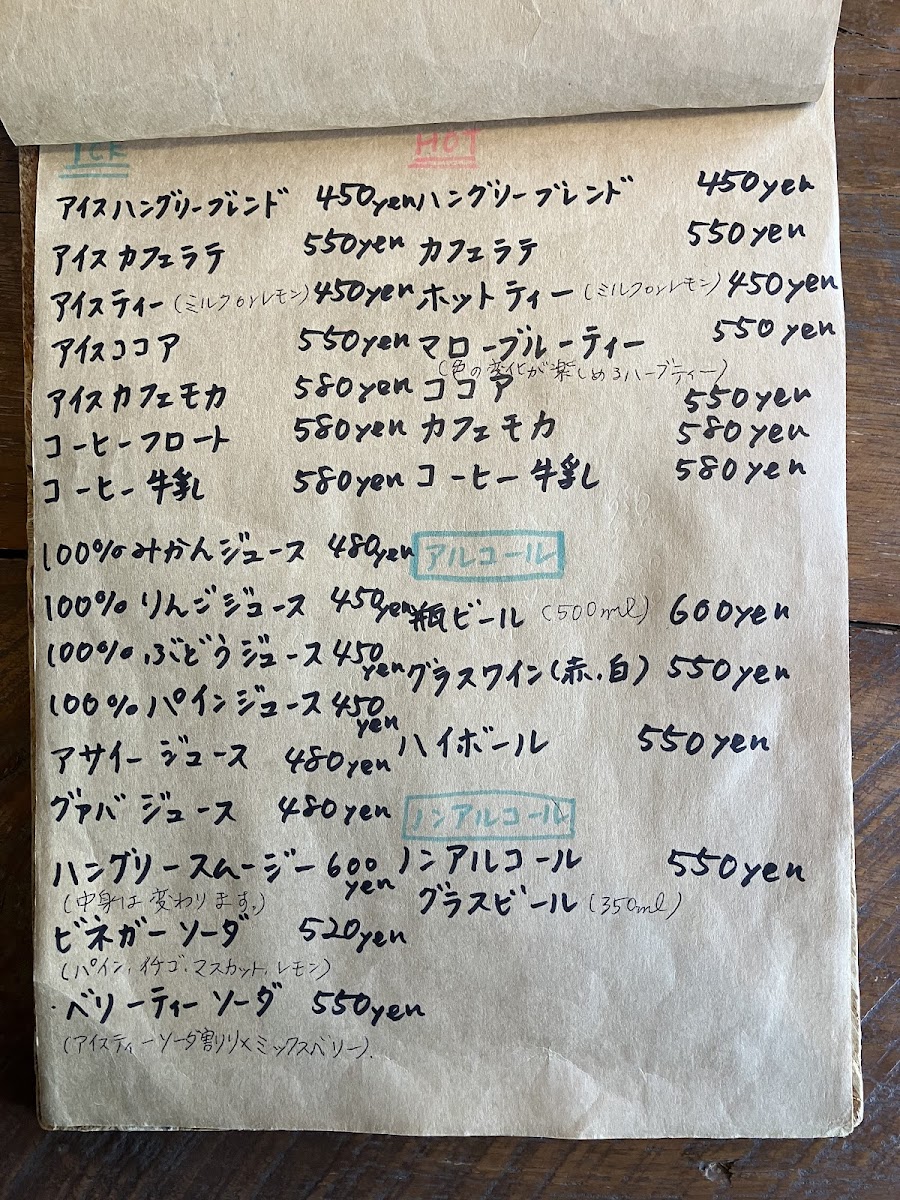 ICE
アイスハングリーブレンド 450yen
アイスカフェラテ 550yen
アイスティー(ミルクorレモン) 450yen
アイスココア 550yen
アイスカフェモカ 580yen
コーヒーフロート 580yen
コーヒー牛乳 580yen
100%みかんジュース 480yen
100%りんごジュース 450yen
100%ぶどうジュース 450yen
100%パインジュース 450yen
アサイージュース 480yen
グァバジュース 480yen
ハングリースムージー 600yen
(中身は変わります。)
ビネガーソーダ 520yen
(パイン、イチゴ、マスカット、レモン)
ベリーティーソーダ 550yen
(アイスティーソーダ割り×ミックスベリー)
HOT
ハングリーブレンド 450yen
カフェラテ 550yen
ホットティー(ミルクorレモン) 450yen
マローブルーティー 550yen
(色の変化が楽しめるハーブティー)
ココア 550yen
カフェモカ 580yen
コーヒー牛乳 580yen
アルコール
瓶ビール(500ml) 600yen
グラスワイン(赤、白) 550yen
ハイボール 550yen
ノンアルコール
ノンアルコール 550yen
グラスビール(350ml)